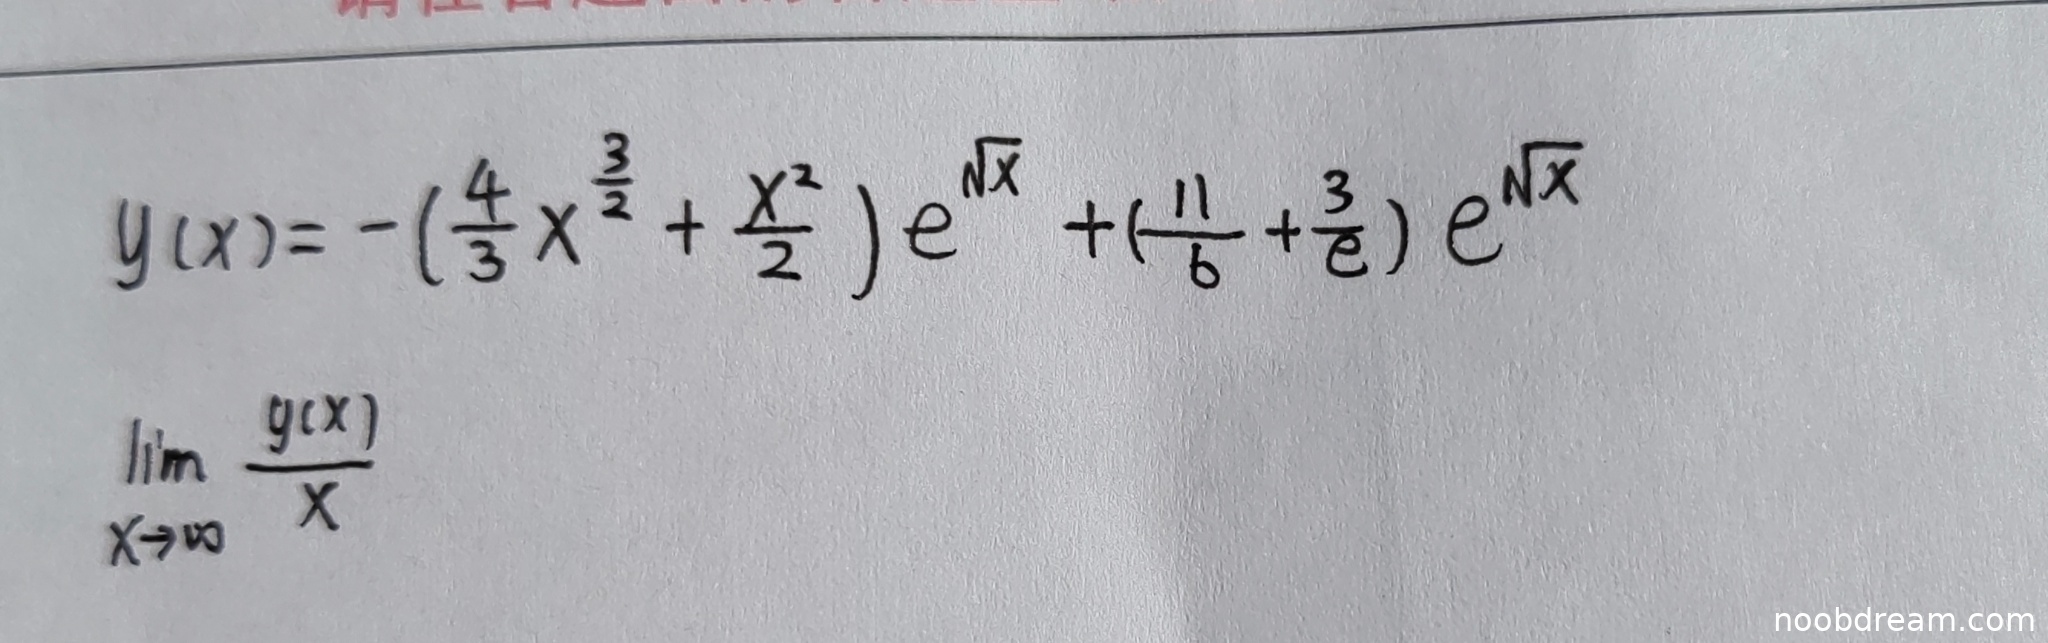 y(x) = -(4/3 x^(3/2) + x²/2) e^√x + (11/6 + 3/e) e^√x
lim x→∞ y(x)/x
noobdream.com